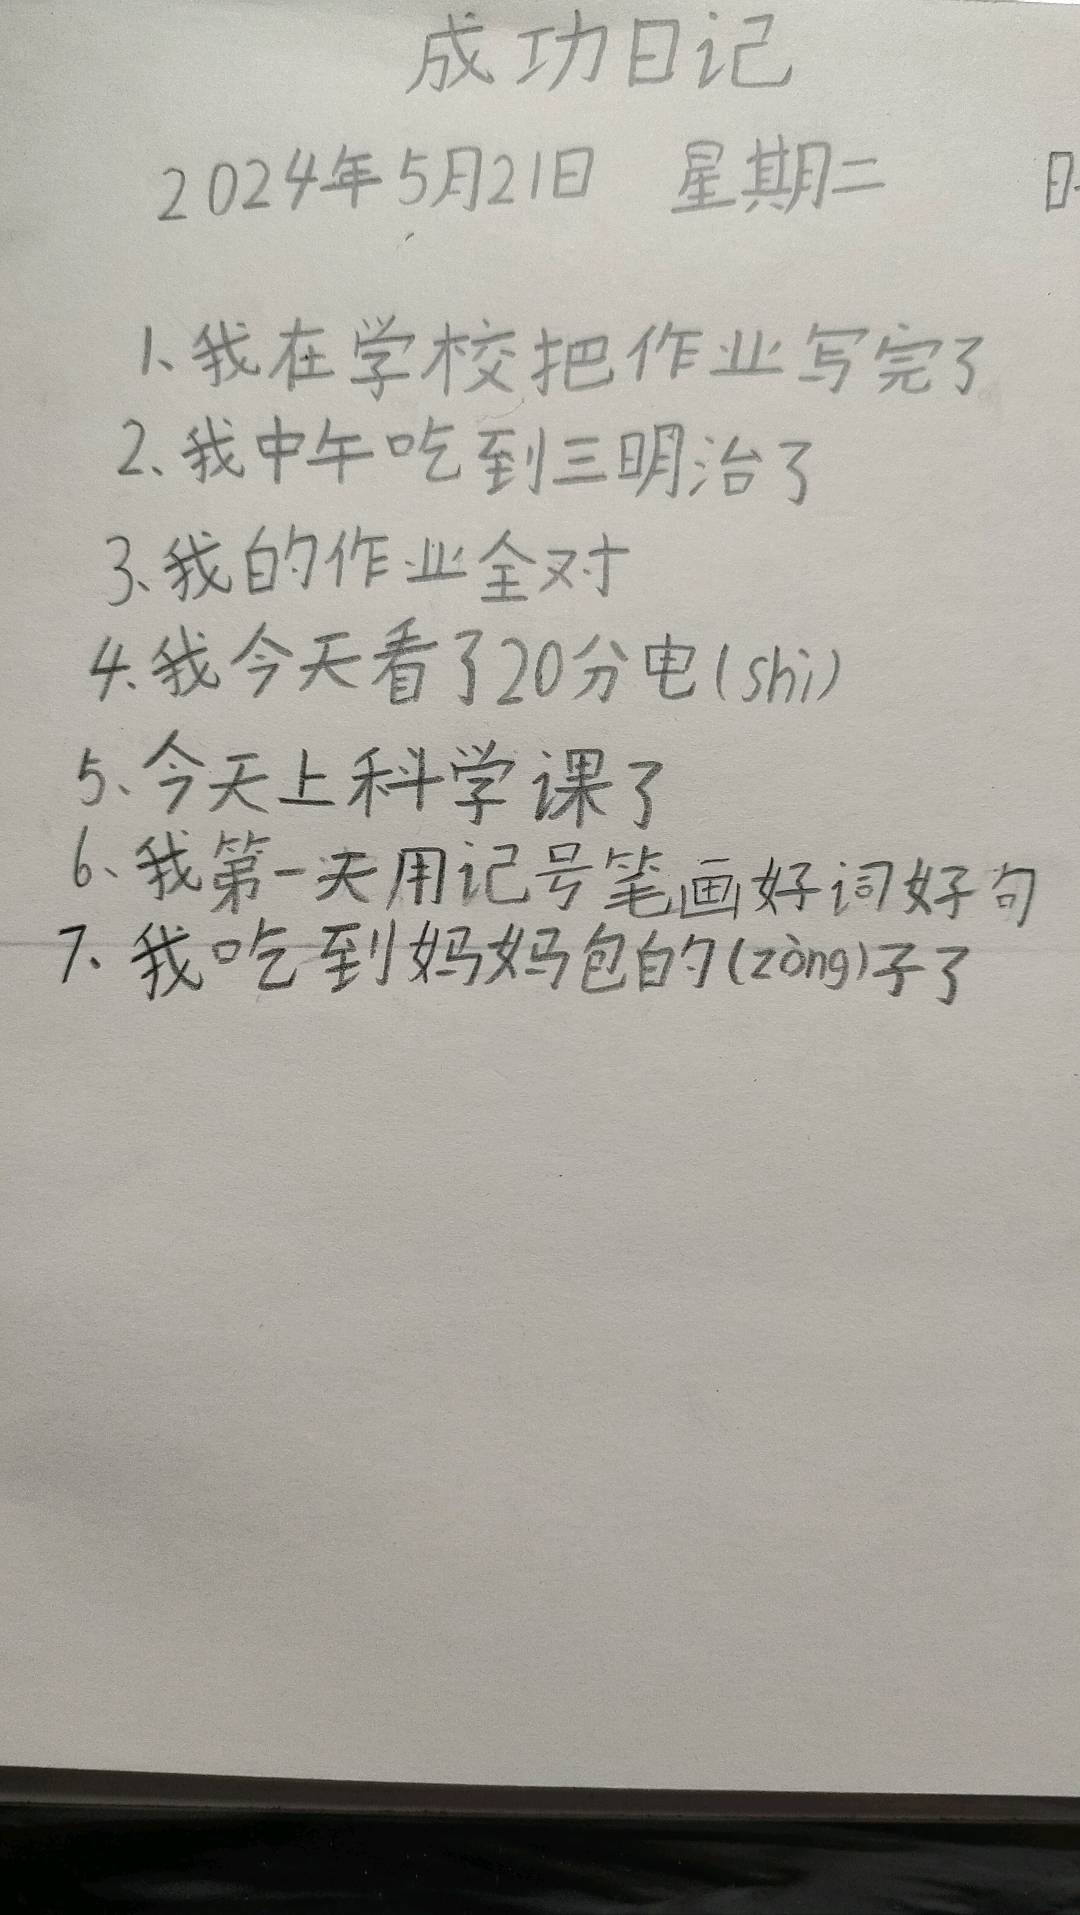 成功日记
2024年5月21日 星期二
1、我在学校把作业写完了
2、我中午吃到三明治了
3、我的作业全对
4、我今天看了20分电(shi)
5、今天上科学课了
6、我第一天用记号笔画好词好句
7、我吃到妈妈包的(zòng)子了